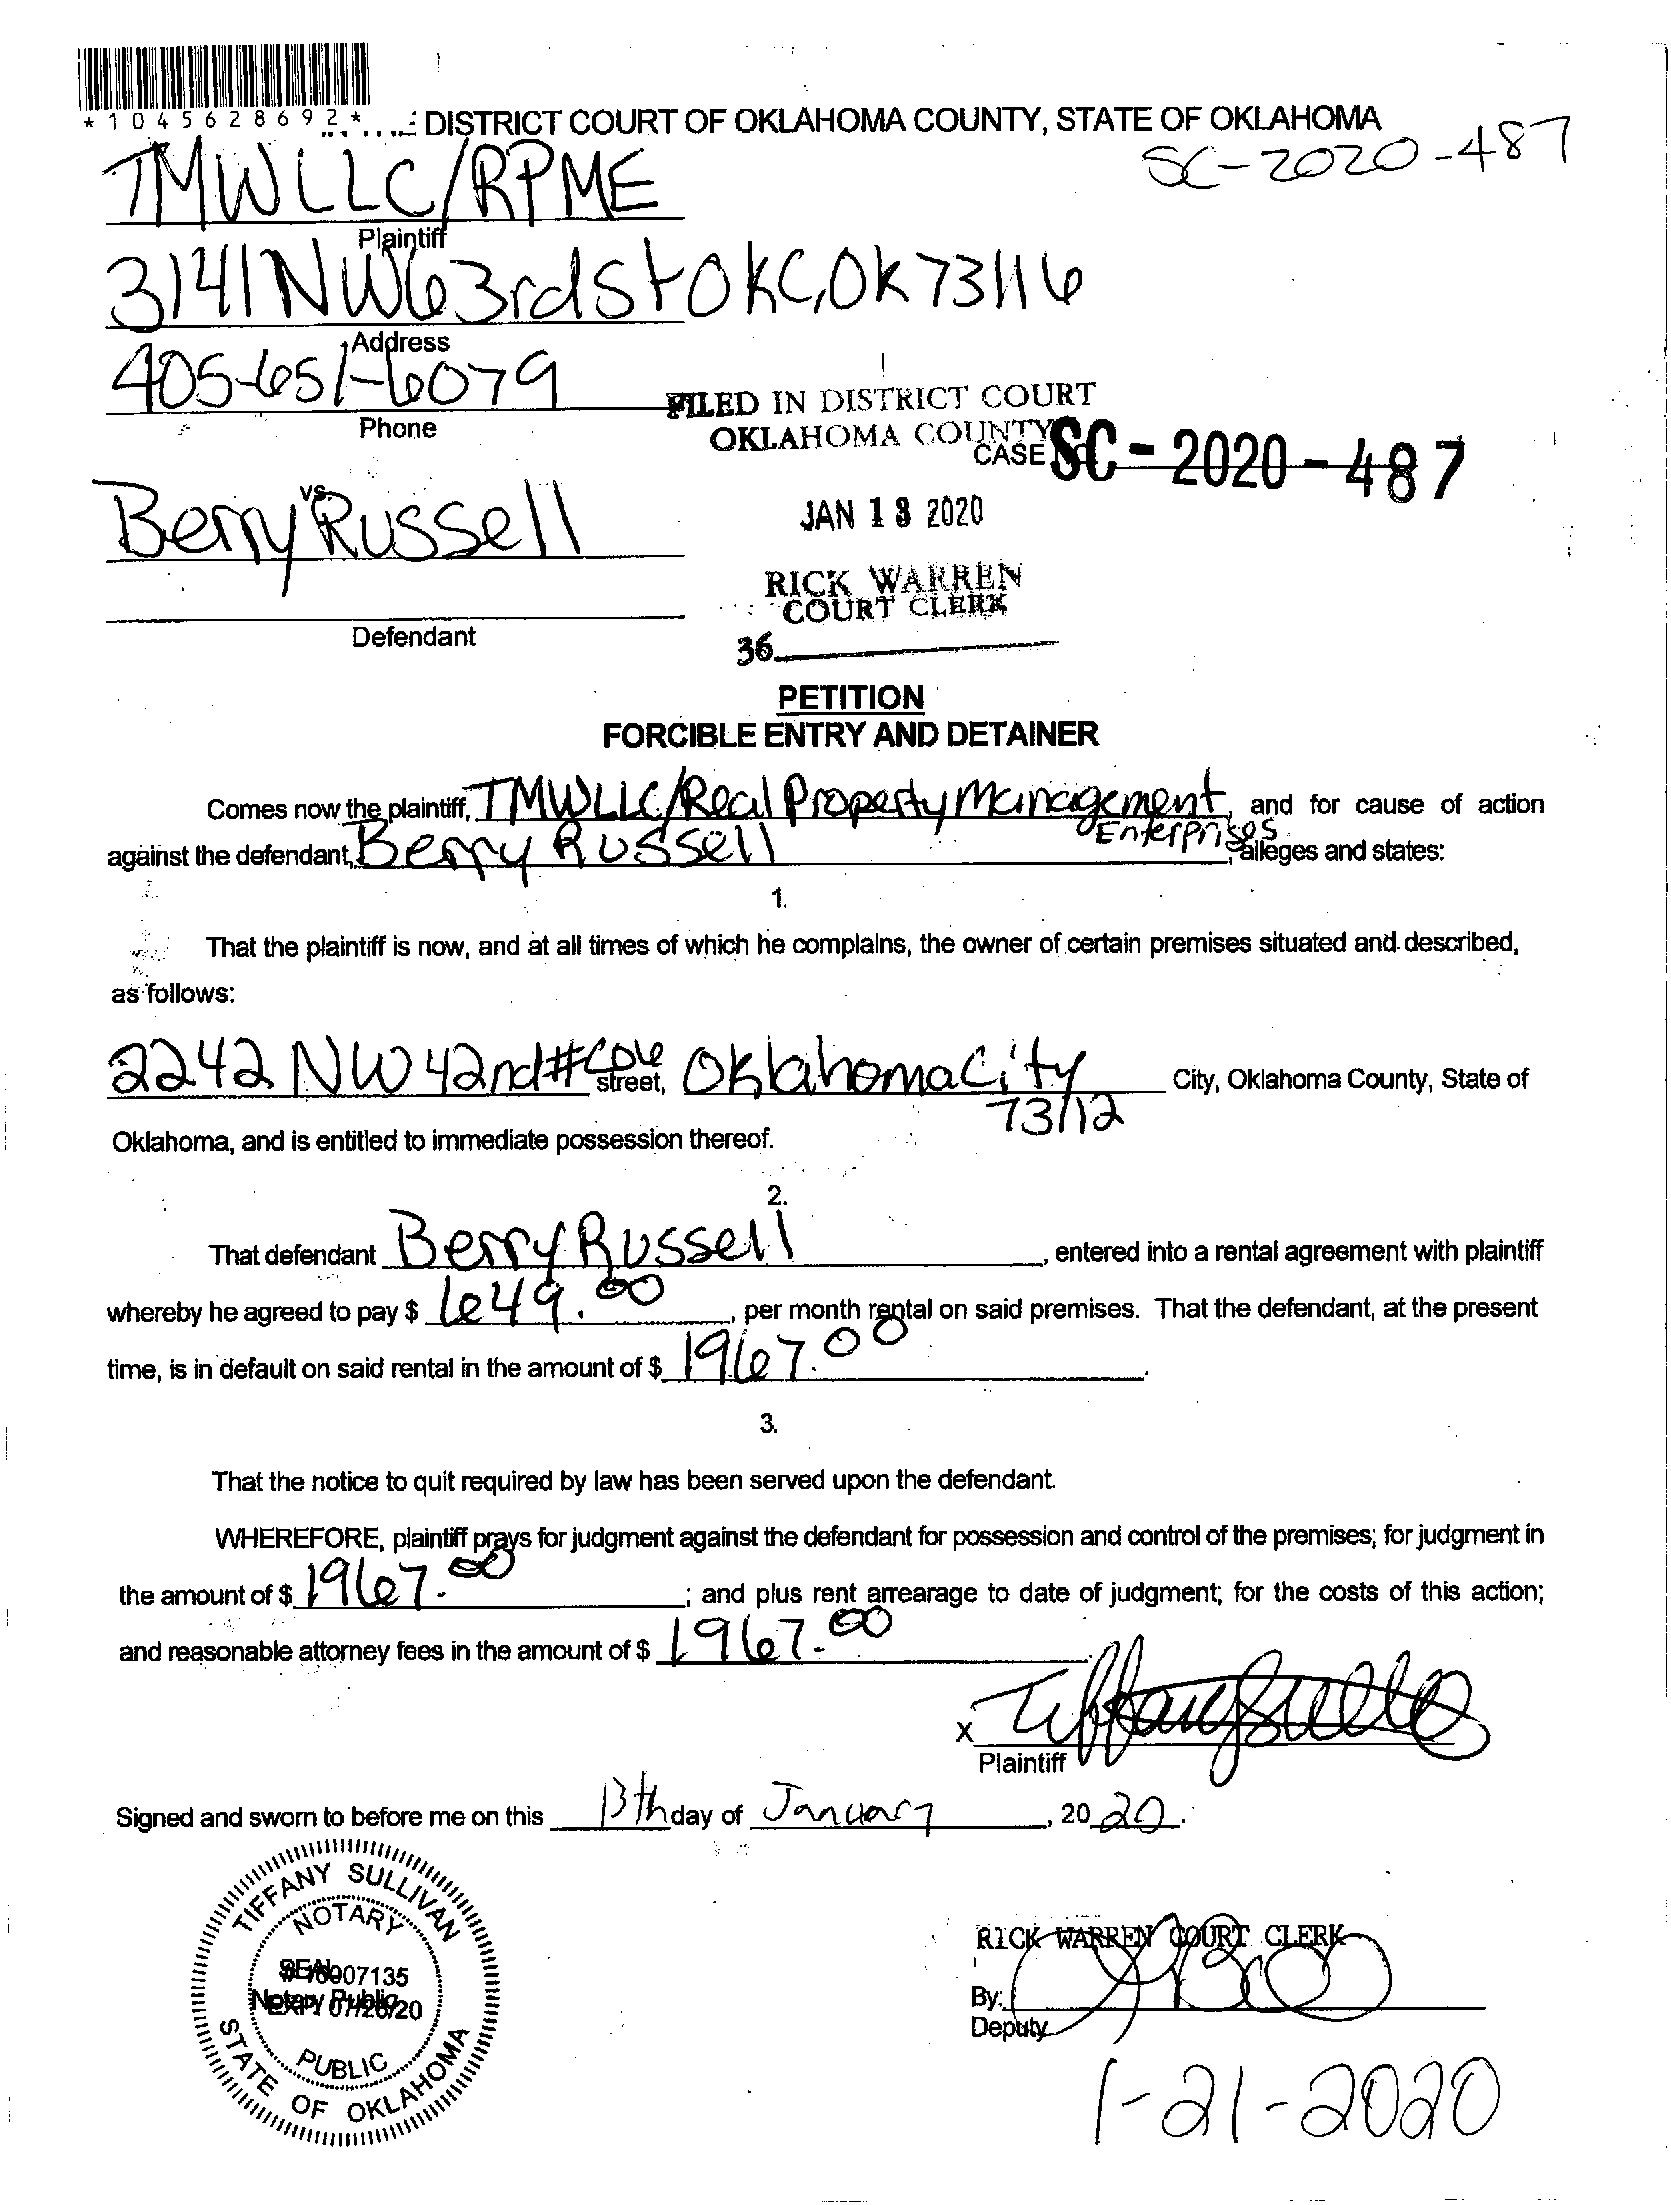 *1045628692*
DISTRICT COURT OF OKLAHOMA COUNTY, STATE OF OKLAHOMA
SC-2020-487
TMWLLC/RPME
Plaintiff
3141 NW 63rd St OKC, OK 73116
Address
405-651-6079
Phone
FILED IN DISTRICT COURT
OKLAHOMA COUNTY
CASE SC-2020-487
vs.
Berry Russell
JAN 13 2020
RICK WARREN
COURT CLERK
Defendant
36
PETITION
FORCIBLE ENTRY AND DETAINER
Comes now the plaintiff, TMWLLC/Real Property Management, and for cause of action
Enterprises
against the defendant, Berry Russell, alleges and states:
1.
That the plaintiff is now, and at all times of which he complains, the owner of certain premises situated and described,
as follows:
2242 NW 42nd # street, Oklahoma City City, Oklahoma County, State of
73112
Oklahoma, and is entitled to immediate possession thereof.
2.
That defendant Berry Russell, entered into a rental agreement with plaintiff
whereby he agreed to pay $ 649.00, per month rental on said premises. That the defendant, at the present
time, is in default on said rental in the amount of $ 1967.00.
3.
That the notice to quit required by law has been served upon the defendant.
WHEREFORE, plaintiff prays for judgment against the defendant for possession and control of the premises; for judgment in
the amount of $ 1967.00; and plus rent arrearage to date of judgment; for the costs of this action;
and reasonable attorney fees in the amount of $ 1967.00
x
Plaintiff
Signed and sworn to before me on this 13th day of January, 2020.
TIFFANY SULLIVAN
NOTARY
SEAL
Notary Public
EXP 07/28/20
PUBLIC
STATE OF OKLAHOMA
RICK WARREN COURT CLERK
By:
Deputy
1-21-2020